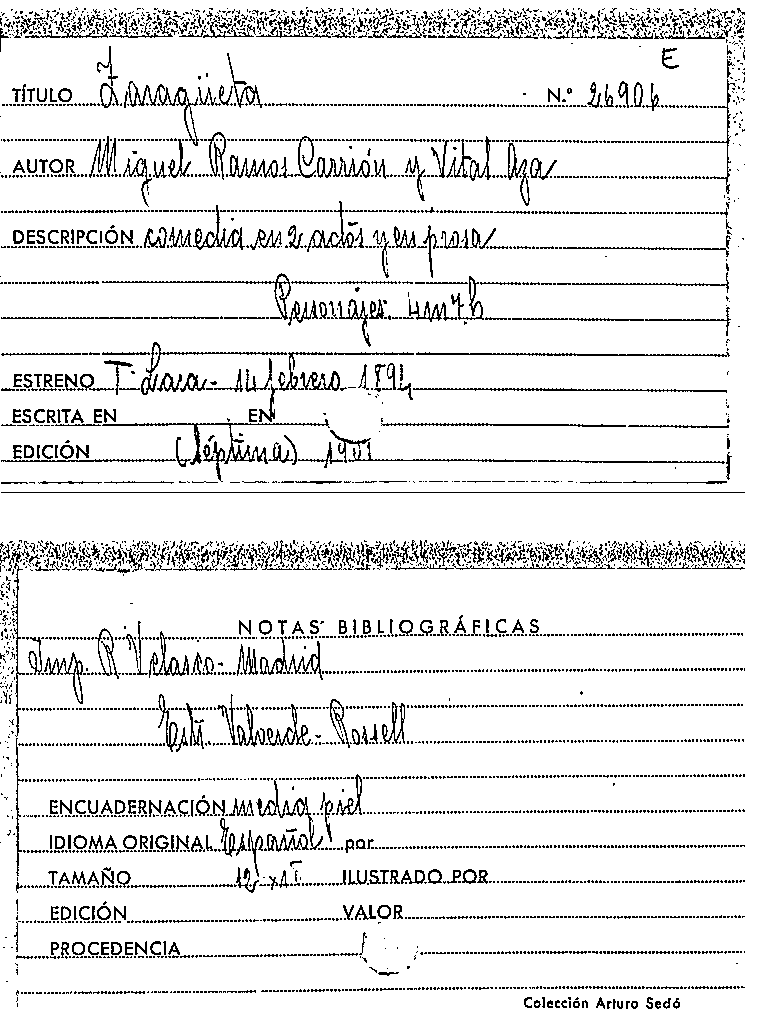 E
TÍTULO Zaragüeta N.º 26906
AUTOR Miguel Ramos Carrión y Vital Aza
DESCRIPCIÓN comedia en 2 actos y en prosa
Personajes: 4m 7h
ESTRENO T. Lara - 14 febrero 1894
ESCRITA EN EN
EDICIÓN (séptima) 1901
NOTAS BIBLIOGRÁFICAS
Imp. R Velasco - Madrid
Estr. Valverde - Rossell
ENCUADERNACIÓN media piel
IDIOMA ORIGINAL Español por
TAMAÑO 12 x ILUSTRADO POR
EDICIÓN VALOR
PROCEDENCIA
Colección Arturo Sedó